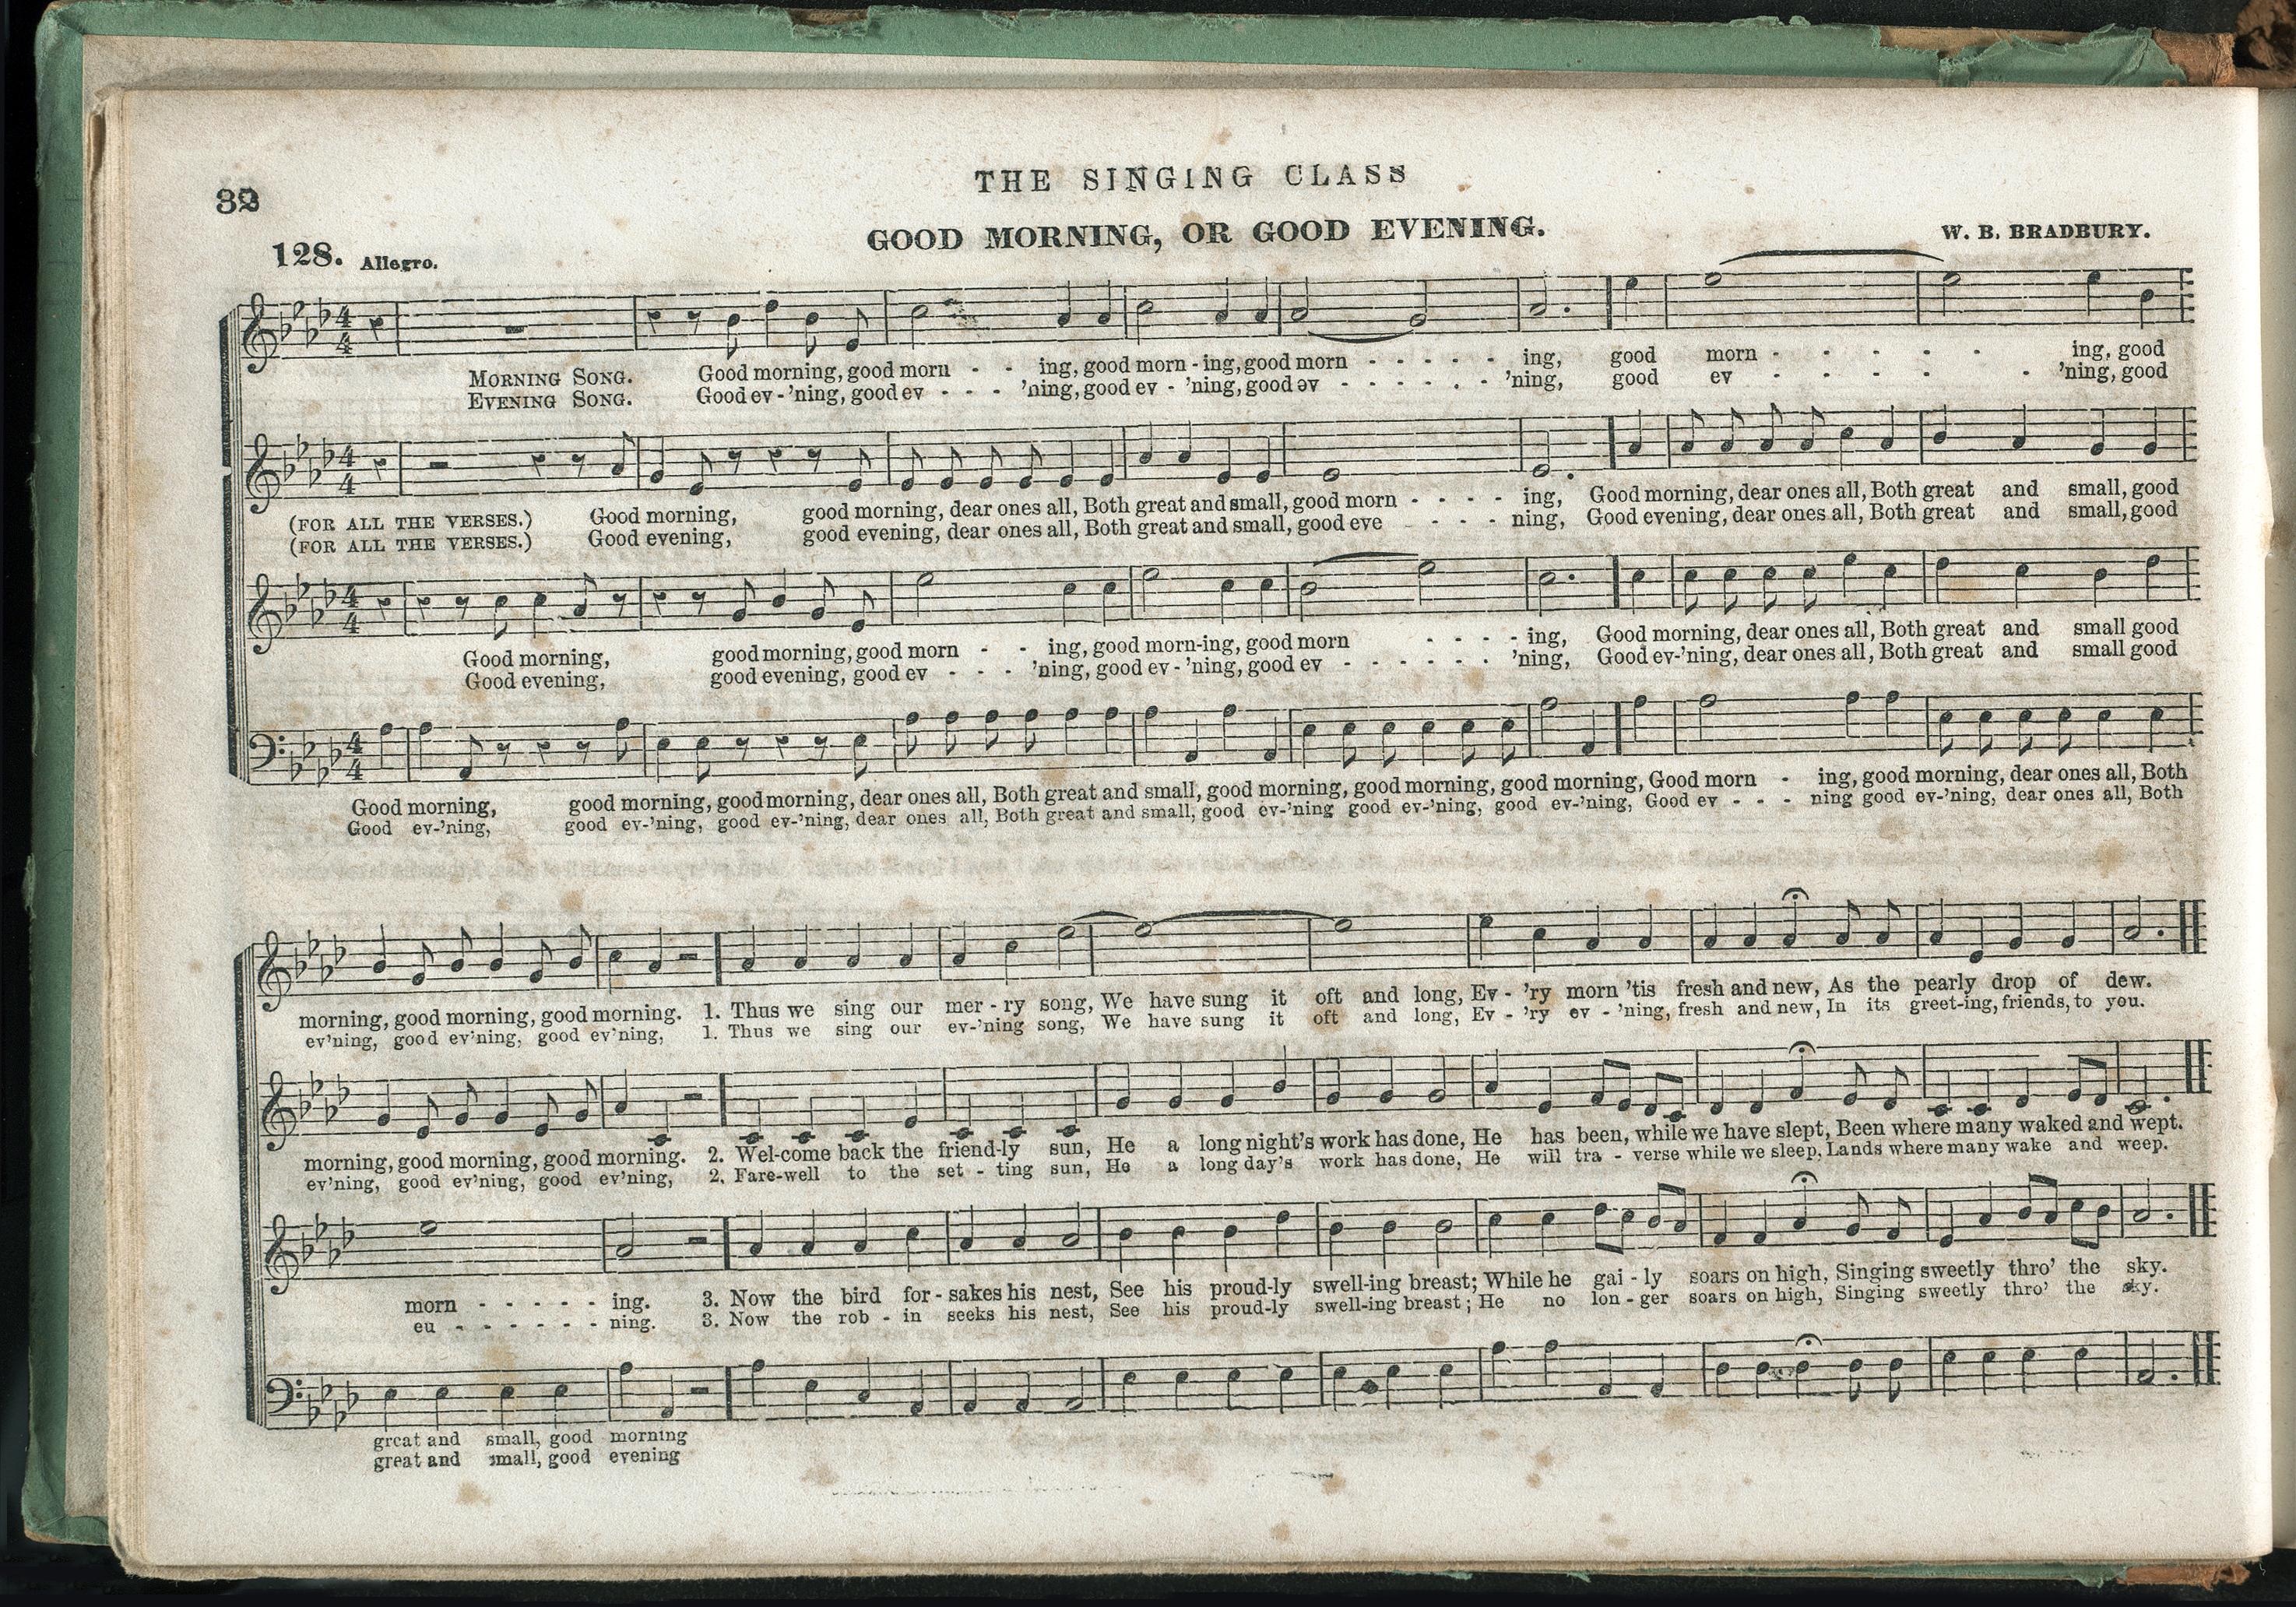 THE SINGING CLASS
32
GOOD MORNING, OR GOOD EVENING.
W. B. BRADBURY.
128. Allegro.
4 4
MORNING SONG. Good morning, good morn - - ing, good morn - ing, good morn - - - - - ing, good morn - - - - - ing, good
EVENING SONG. Good ev - 'ning, good ev - - - 'ning, good ev - 'ning, good ev - - - - - - 'ning, good ev - - - - - 'ning, good
4 4
(FOR ALL THE VERSES.) Good morning, good morning, dear ones all, Both great and small, good morn - - - - ing, Good morning, dear ones all, Both great and small, good
(FOR ALL THE VERSES.) Good evening, good evening, dear ones all, Both great and small, good eve - - - ning, Good evening, dear ones all, Both great and small, good
4 4
Good morning, good morning, good morn - - ing, good morn-ing, good morn - - - - ing, Good morning, dear ones all, Both great and small good
Good evening, good evening, good ev - - - 'ning, good ev - 'ning, good ev - - - - - - 'ning, Good ev-'ning, dear ones all, Both great and small good
4 4
Good morning, good morning, good morning, dear ones all, Both great and small, good morning, good morning, good morning, Good morn - ing, good morning, dear ones all, Both
Good ev-'ning, good ev-'ning, good ev-'ning, dear ones all, Both great and small, good ev-'ning good ev-'ning, good ev-'ning, Good ev - - - ning good ev-'ning, dear ones all, Both
morning, good morning, good morning. 1. Thus we sing our mer - ry song, We have sung it oft and long, Ev - 'ry morn 'tis fresh and new, As the pearly drop of dew.
ev'ning, good ev'ning, good ev'ning, 1. Thus we sing our ev-'ning song, We have sung it oft and long, Ev - 'ry ev - 'ning, fresh and new, In its greet-ing, friends, to you.
morning, good morning, good morning. 2. Wel-come back the friend-ly sun, He a long night's work has done, He has been, while we have slept, Been where many waked and wept.
ev'ning, good ev'ning, good ev'ning, 2. Fare-well to the set - ting sun, He a long day's work has done, He will tra - verse while we sleep, Lands where many wake and weep.
morn - - - - - ing. 3. Now the bird for - sakes his nest, See his proud-ly swell-ing breast; While he gai - ly soars on high, Singing sweetly thro' the sky.
eu - - - - - - ning. 3. Now the rob - in seeks his nest, See his proud-ly swell-ing breast; He no lon - ger soars on high, Singing sweetly thro' the sky.
great and small, good morning
great and small, good evening